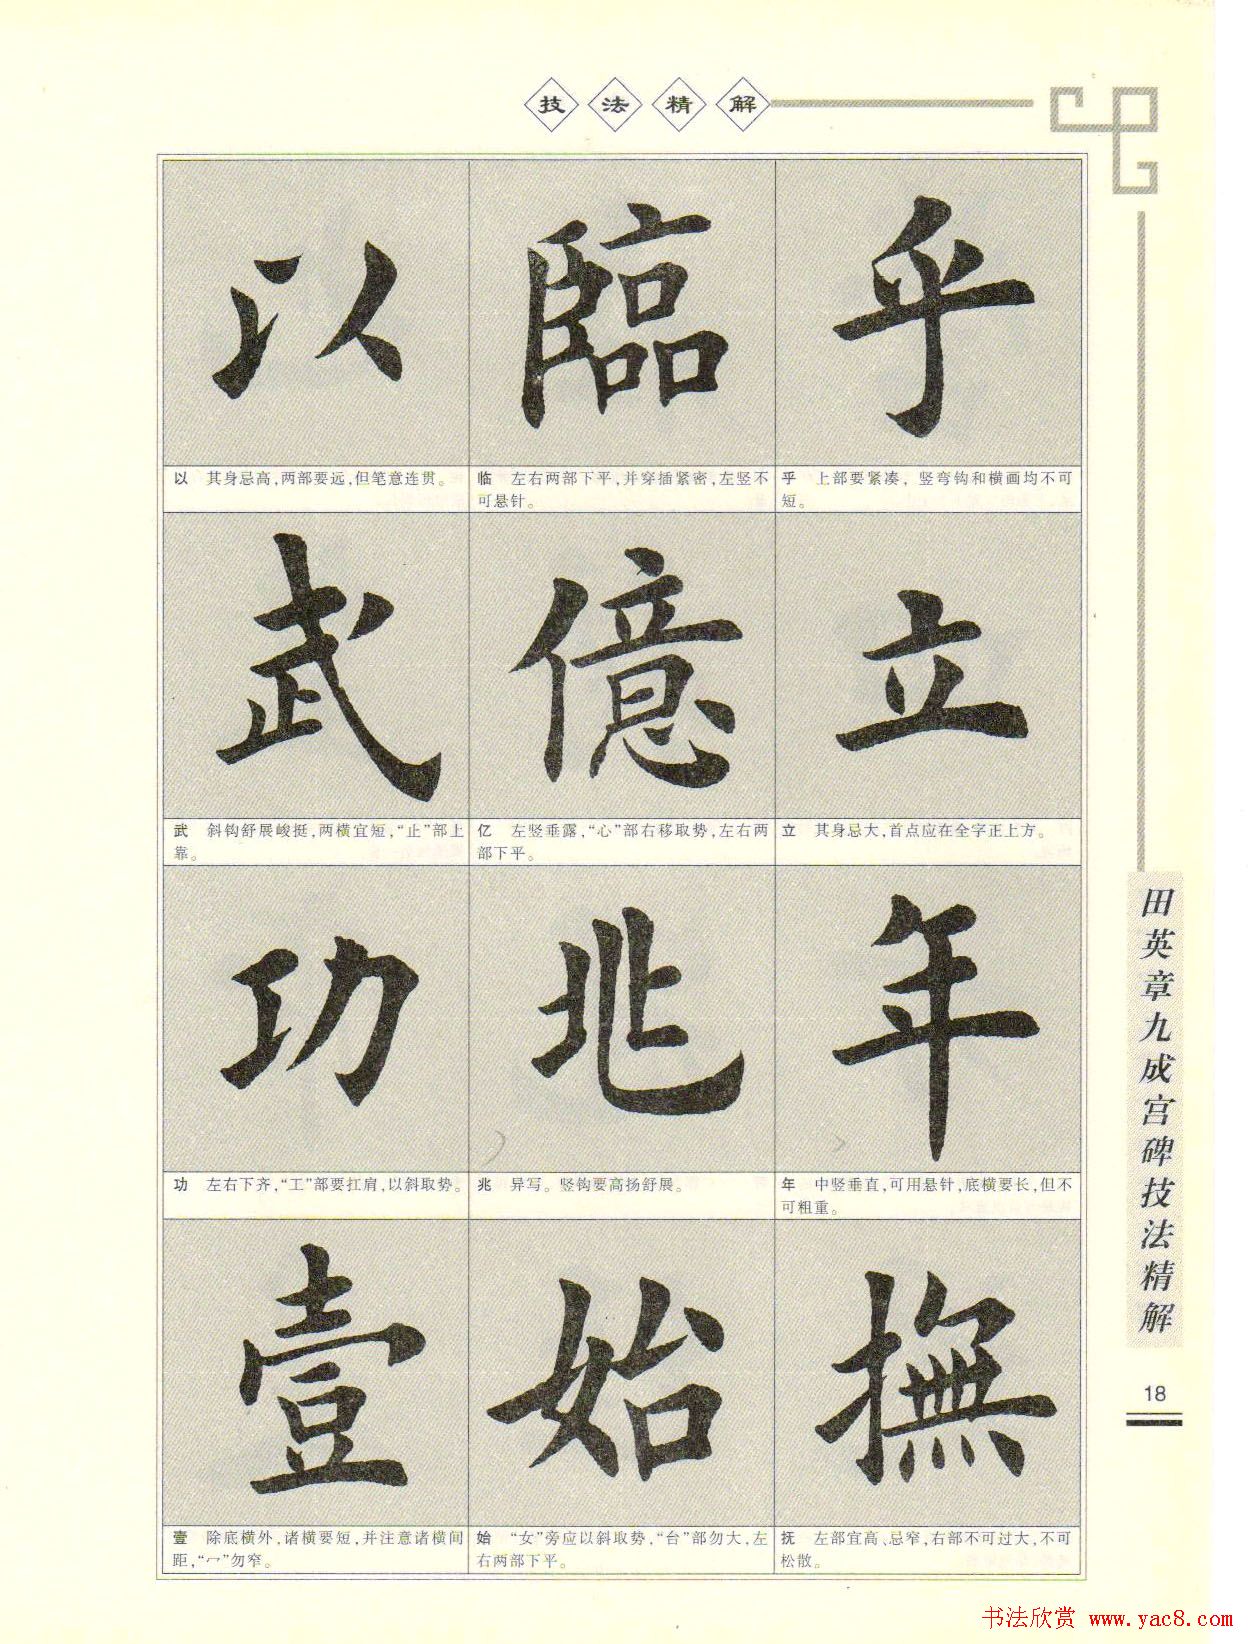 技法精解
以 臨 乎
以 其身忌高,两部要远,但笔意连贯。
临 左右两部下平,并穿插紧密,左竖不
可悬针。
乎 上部要紧凑,竖弯钩和横画均不可
短。
武 億 立
武 斜钩舒展峻挺,两横宜短,“止”部上
靠。
亿 左竖垂露,“心”部右移取势,左右两
部下平。
立 其身忌大,首点应在全字正上方。
功 兆 年
功 左右下齐,“工”部要扛肩,以斜取势。
兆 异写。竖钩要高扬舒展。
年 中竖垂直,可用悬针,底横要长,但不
可粗重。
壹 始 撫
壹 除底横外,诸横要短,并注意诸横间
距,“冖”勿窄。
始 “女”旁应以斜取势,“台”部勿大,左
右两部下平。
抚 左部宜高、忌窄,右部不可过大,不可
松散。
田英章九成宫碑技法精解
18
书法欣赏 www.yac8.com